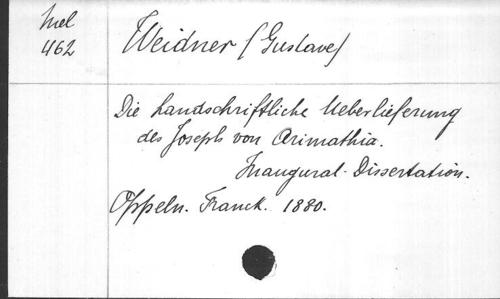 Mel
462
Weidner (Gustave)
Die handschriftliche Ueberlieferung
des Joseph von Arimathia.
Inaugural-Dissertation.
Oppeln. Franck. 1880.